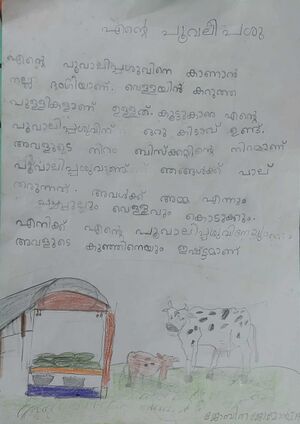 എന്റെ പൂവാലി പശു
എന്റെ പൂവാലിപ്പശുവിനെ കാണാൻ
നല്ല ഭംഗിയാണ്. വെള്ളയിൽ കറുത്ത
പുള്ളികളാണ് ഉള്ളത്. കൂട്ടുകാരേ എന്റെ
പൂവാലിപ്പശുവിന് ഒരു കിടാവ് ഉണ്ട്.
അവളുടെ നിറം ബിസ്ക്കറ്റിന്റെ നിറമാണ്
പൂവാലിപ്പശുവാണ് ഞങ്ങൾക്ക് പാല്
തരുന്നത്. അവൾക്ക് അമ്മ എന്നും
വെള്ളവും കൊടുക്കും.
എനിക്ക് എന്റെ പൂവാലിപ്പശുവിനേയും
അവളുടെ കുഞ്ഞിനെയും ഇഷ്ട്ടമാണ്
ജോബിന